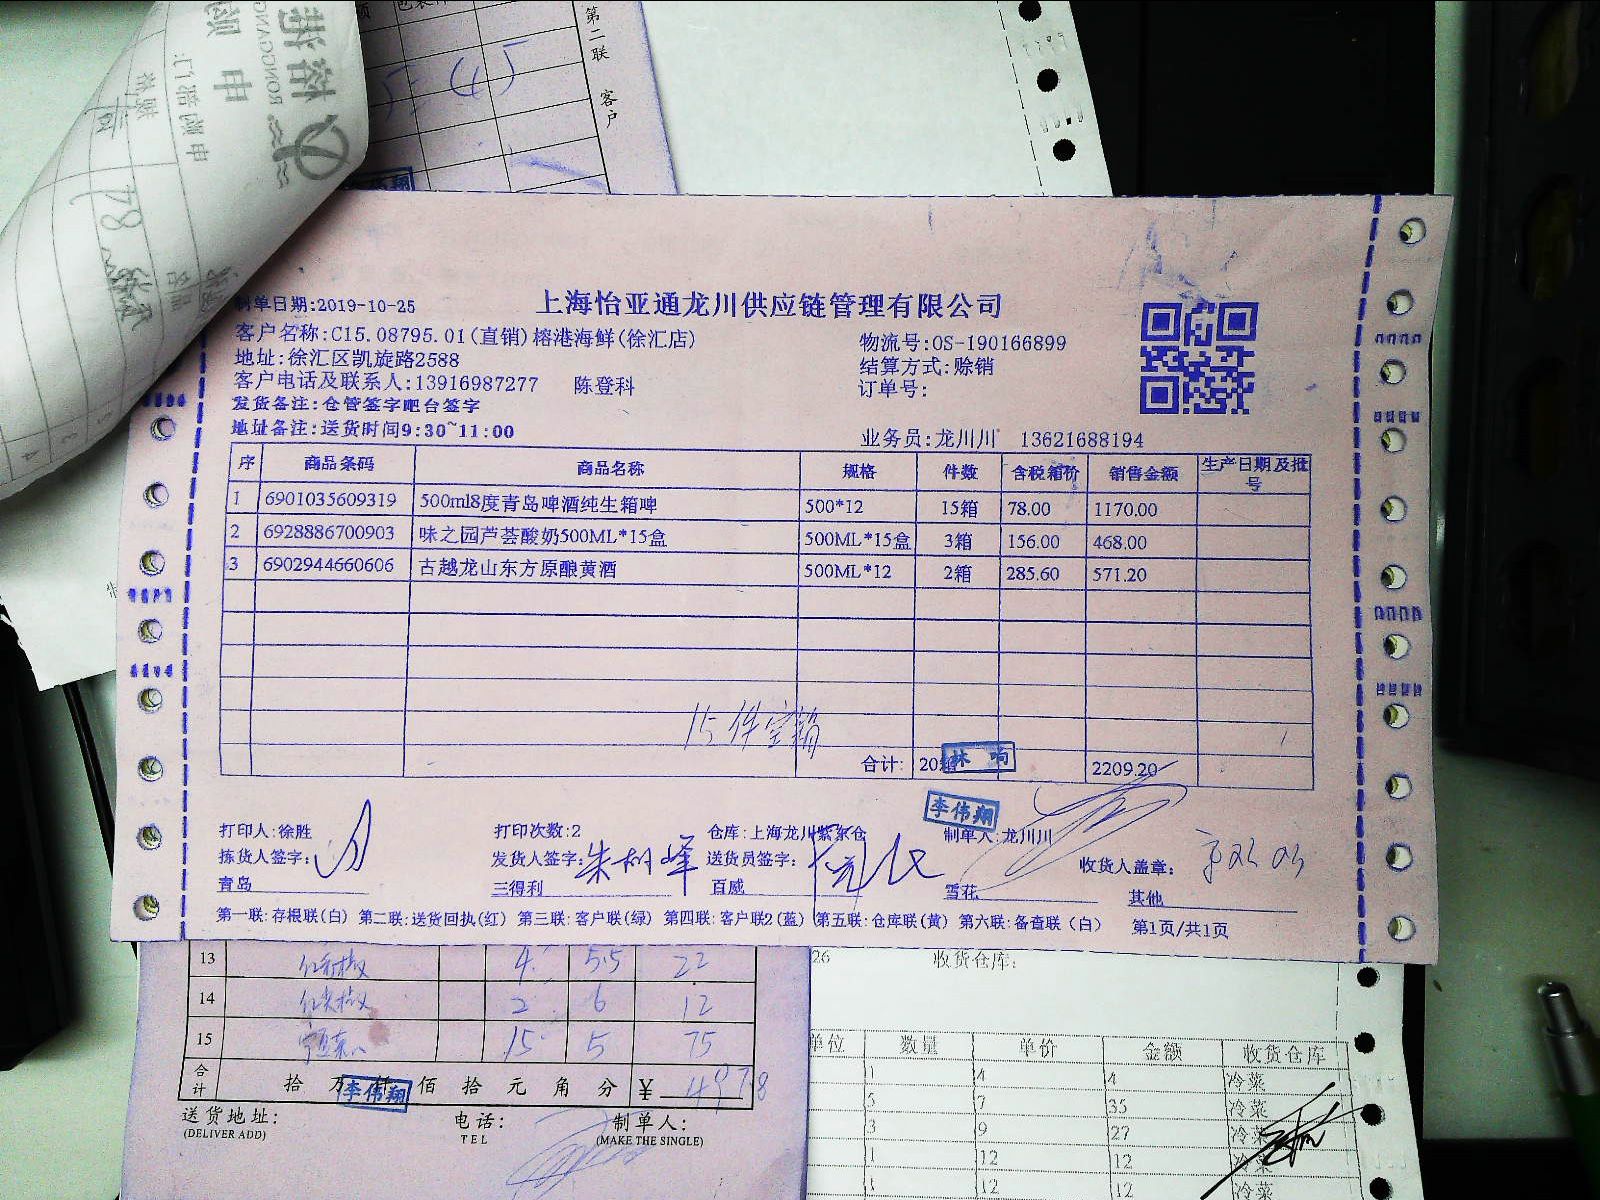 第二联 客户
45
制单日期:2019-10-25
上海怡亚通龙川供应链管理有限公司
客户名称:C15.08795.01(直销)榕港海鲜(徐汇店)
物流号:OS-190166899
地址:徐汇区凯旋路2588
结算方式:赊销
客户电话及联系人:13916987277 陈登科
订单号:
发货备注:仓管签字吧台签字
地址备注:送货时间9:30~11:00
业务员:龙川川 13621688194
序 商品条码 商品名称 规格 件数 含税箱价 销售金额 生产日期及批号
1 6901035609319 500ml8度青岛啤酒纯生箱啤 500*12 15箱 78.00 1170.00
2 6928886700903 味之园芦荟酸奶500ML*15盒 500ML*15盒 3箱 156.00 468.00
3 6902944660606 古越龙山东方原酿黄酒 500ML*12 2箱 285.60 571.20
15件空箱
合计: 20箱 林响 2209.20
李伟翔
打印人:徐胜 打印次数:2 仓库:上海龙川紫东仓 制单人:龙川川
拣货人签字: 发货人签字:朱树峰 送货员签字: 收货人盖章:
青岛 三得利 百威 雪花 其他
第一联:存根联(白) 第二联:送货回执(红) 第三联:客户联(绿) 第四联:客户联2(蓝) 第五联:仓库联(黄) 第六联:备查联(白) 第1页/共1页
13 4 5.5 22
14 2 6 12
15 15 5 75
合计 拾 万 仟 佰 拾 元 角 分 ¥
李伟翔
送货地址: 电话: 制单人:
(DELIVER ADD) TEL (MAKE THE SINGLE)
26 收货仓库:
单位 数量 单价 金额 收货仓库
1 4 4 冷菜
5 7 35 冷菜
3 9 27 冷菜
1 12 12 冷菜
1 12 12 冷菜